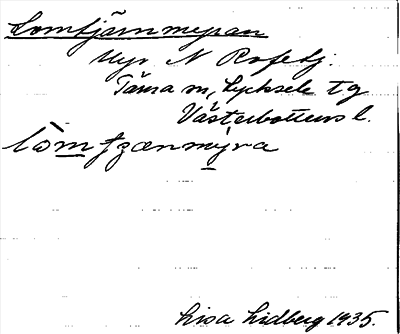 Lomtjärnmyran
Myr N Rosetj.
Tärna sn, Lycksele tg
Västerbottens l.
lòmtjænmýra
Lisa Lidberg 1935.